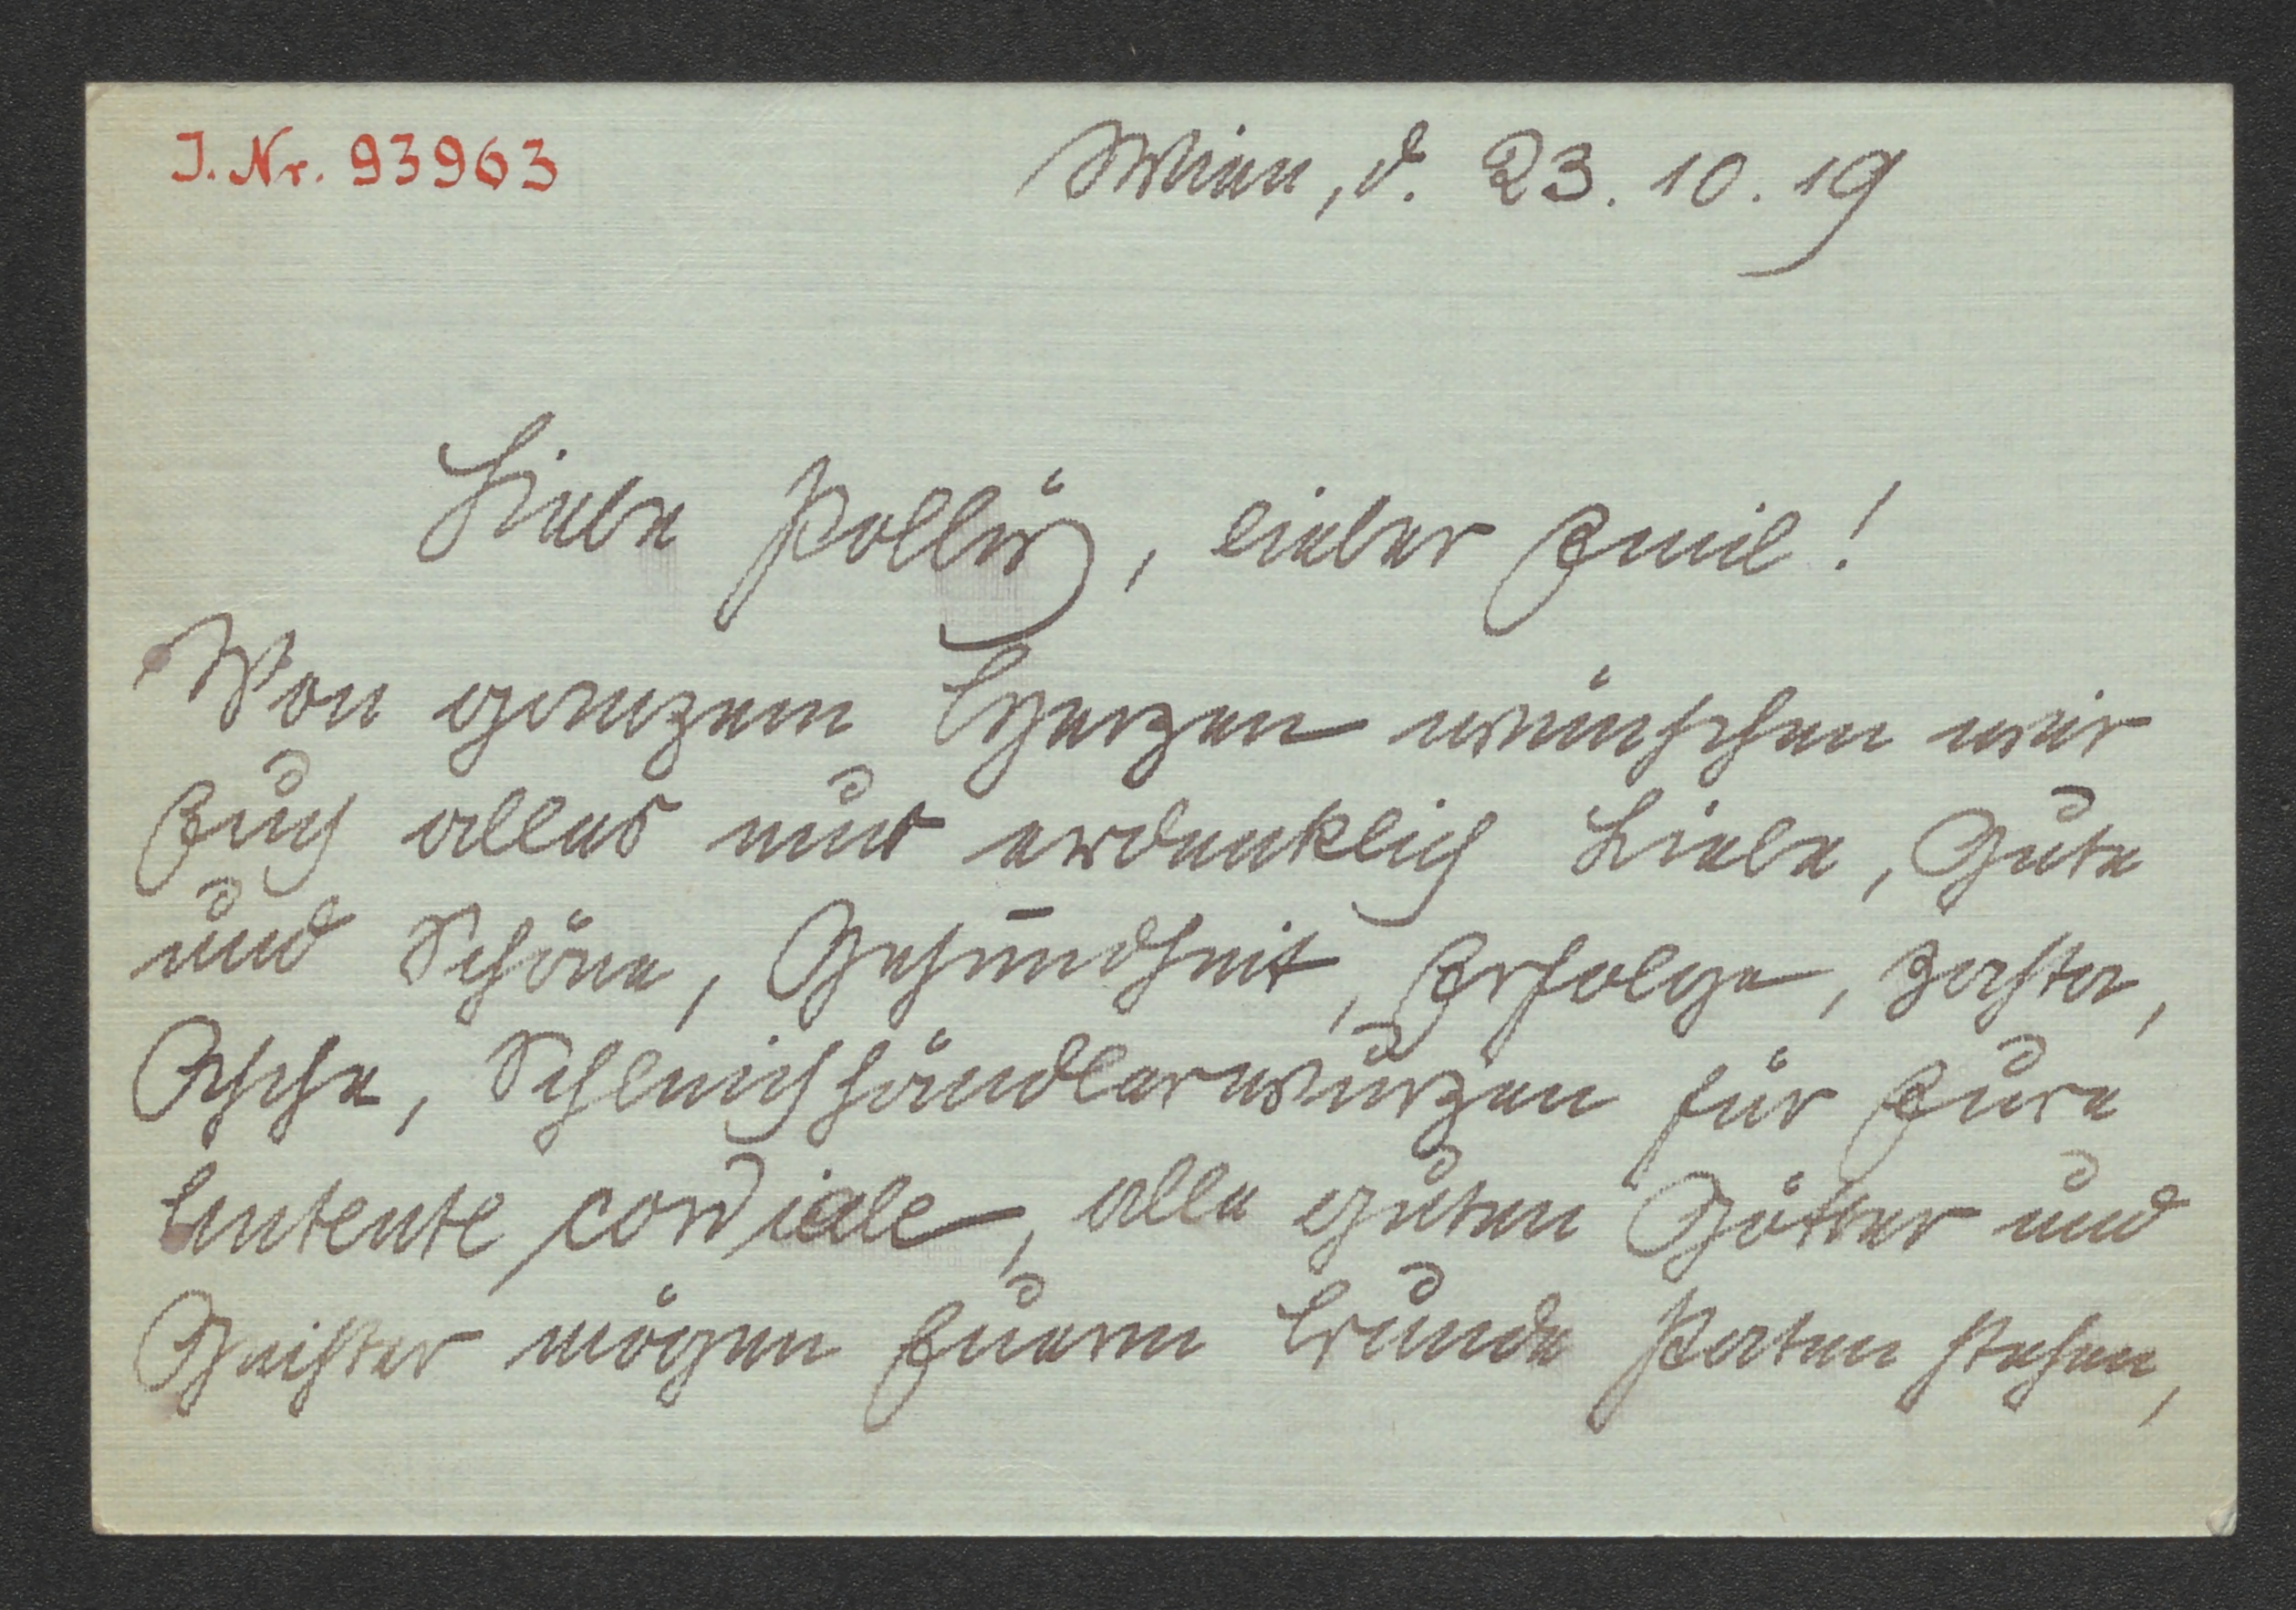 J. Nr. 93963
Wien, d. 23. 10. 19
Liebe Polly, lieber Emil!
Von ganzem Herzen wünschen wir
Euch alles nur erdenklich Liebe, Gute
und Schöne, Gesundheit, Erfolge, Zasta,
Asche, Schleichhändlerwurzen für Eure
Entente cordiale, alle guten Götter und
Geister mögen Euerm Bunde Paten stehen,